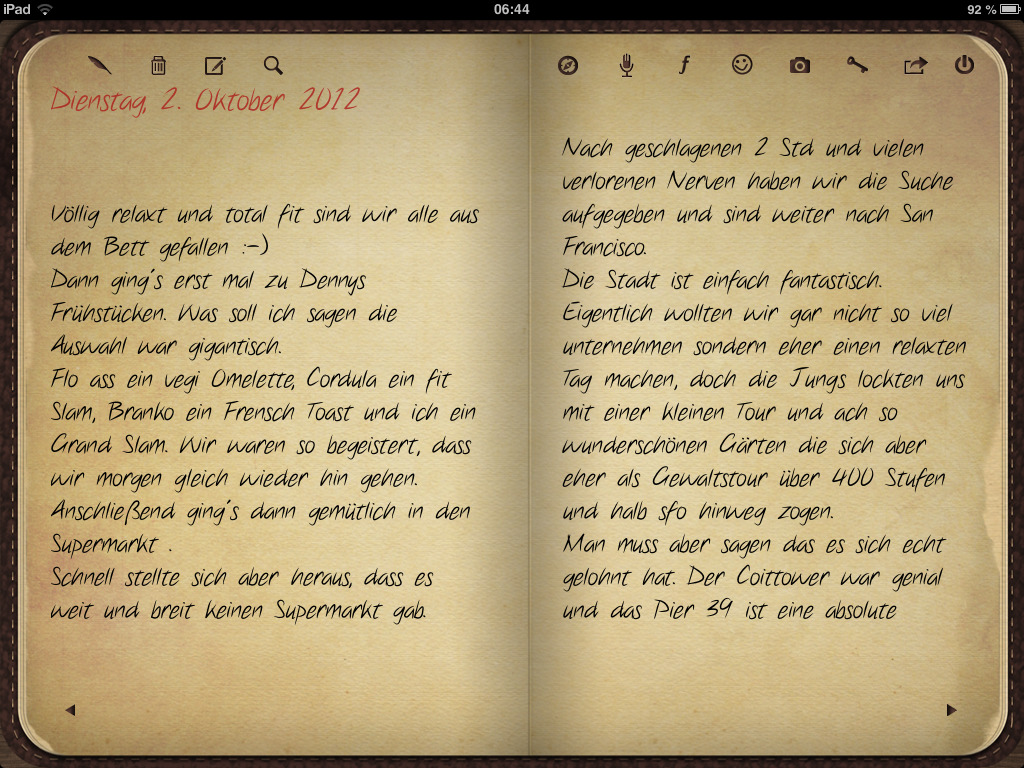 iPad 06:44 92 %
Dienstag, 2. Oktober 2012
Völlig relaxt und total fit sind wir alle aus
dem Bett gefallen :-)
Dann ging's erst mal zu Dennys
Frühstücken. Was soll ich sagen die
Auswahl war gigantisch.
Flo ass ein vegi Omelette, Cordula ein fit
Slam, Branko ein Frensch Toast und ich ein
Grand Slam. Wir waren so begeistert, dass
wir morgen gleich wieder hin gehen.
Anschließend ging's dann gemütlich in den
Supermarkt .
Schnell stellte sich aber heraus, dass es
weit und breit keinen Supermarkt gab.
Nach geschlagenen 2 Std und vielen
verlorenen Nerven haben wir die Suche
aufgegeben und sind weiter nach San
Francisco.
Die Stadt ist einfach fantastisch.
Eigentlich wollten wir gar nicht so viel
unternehmen sondern eher einen relaxten
Tag machen, doch die Jungs lockten uns
mit einer kleinen Tour und ach so
wunderschönen Gärten die sich aber
eher als Gewaltstour über 400 Stufen
und halb sfo hinweg zogen.
Man muss aber sagen das es sich echt
gelohnt hat. Der Coittower war genial
und das Pier 39 ist eine absolute